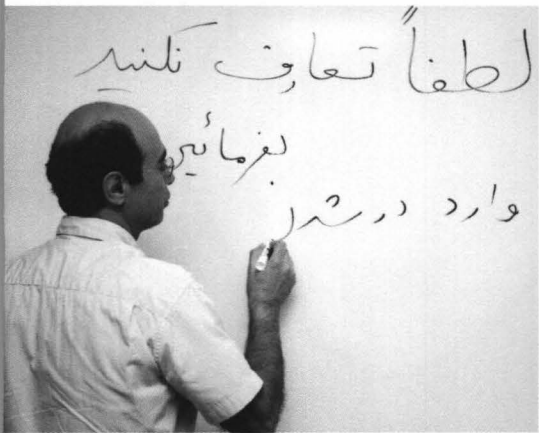 لطفاً تعارف نکنید
بفرمائید
وارد در